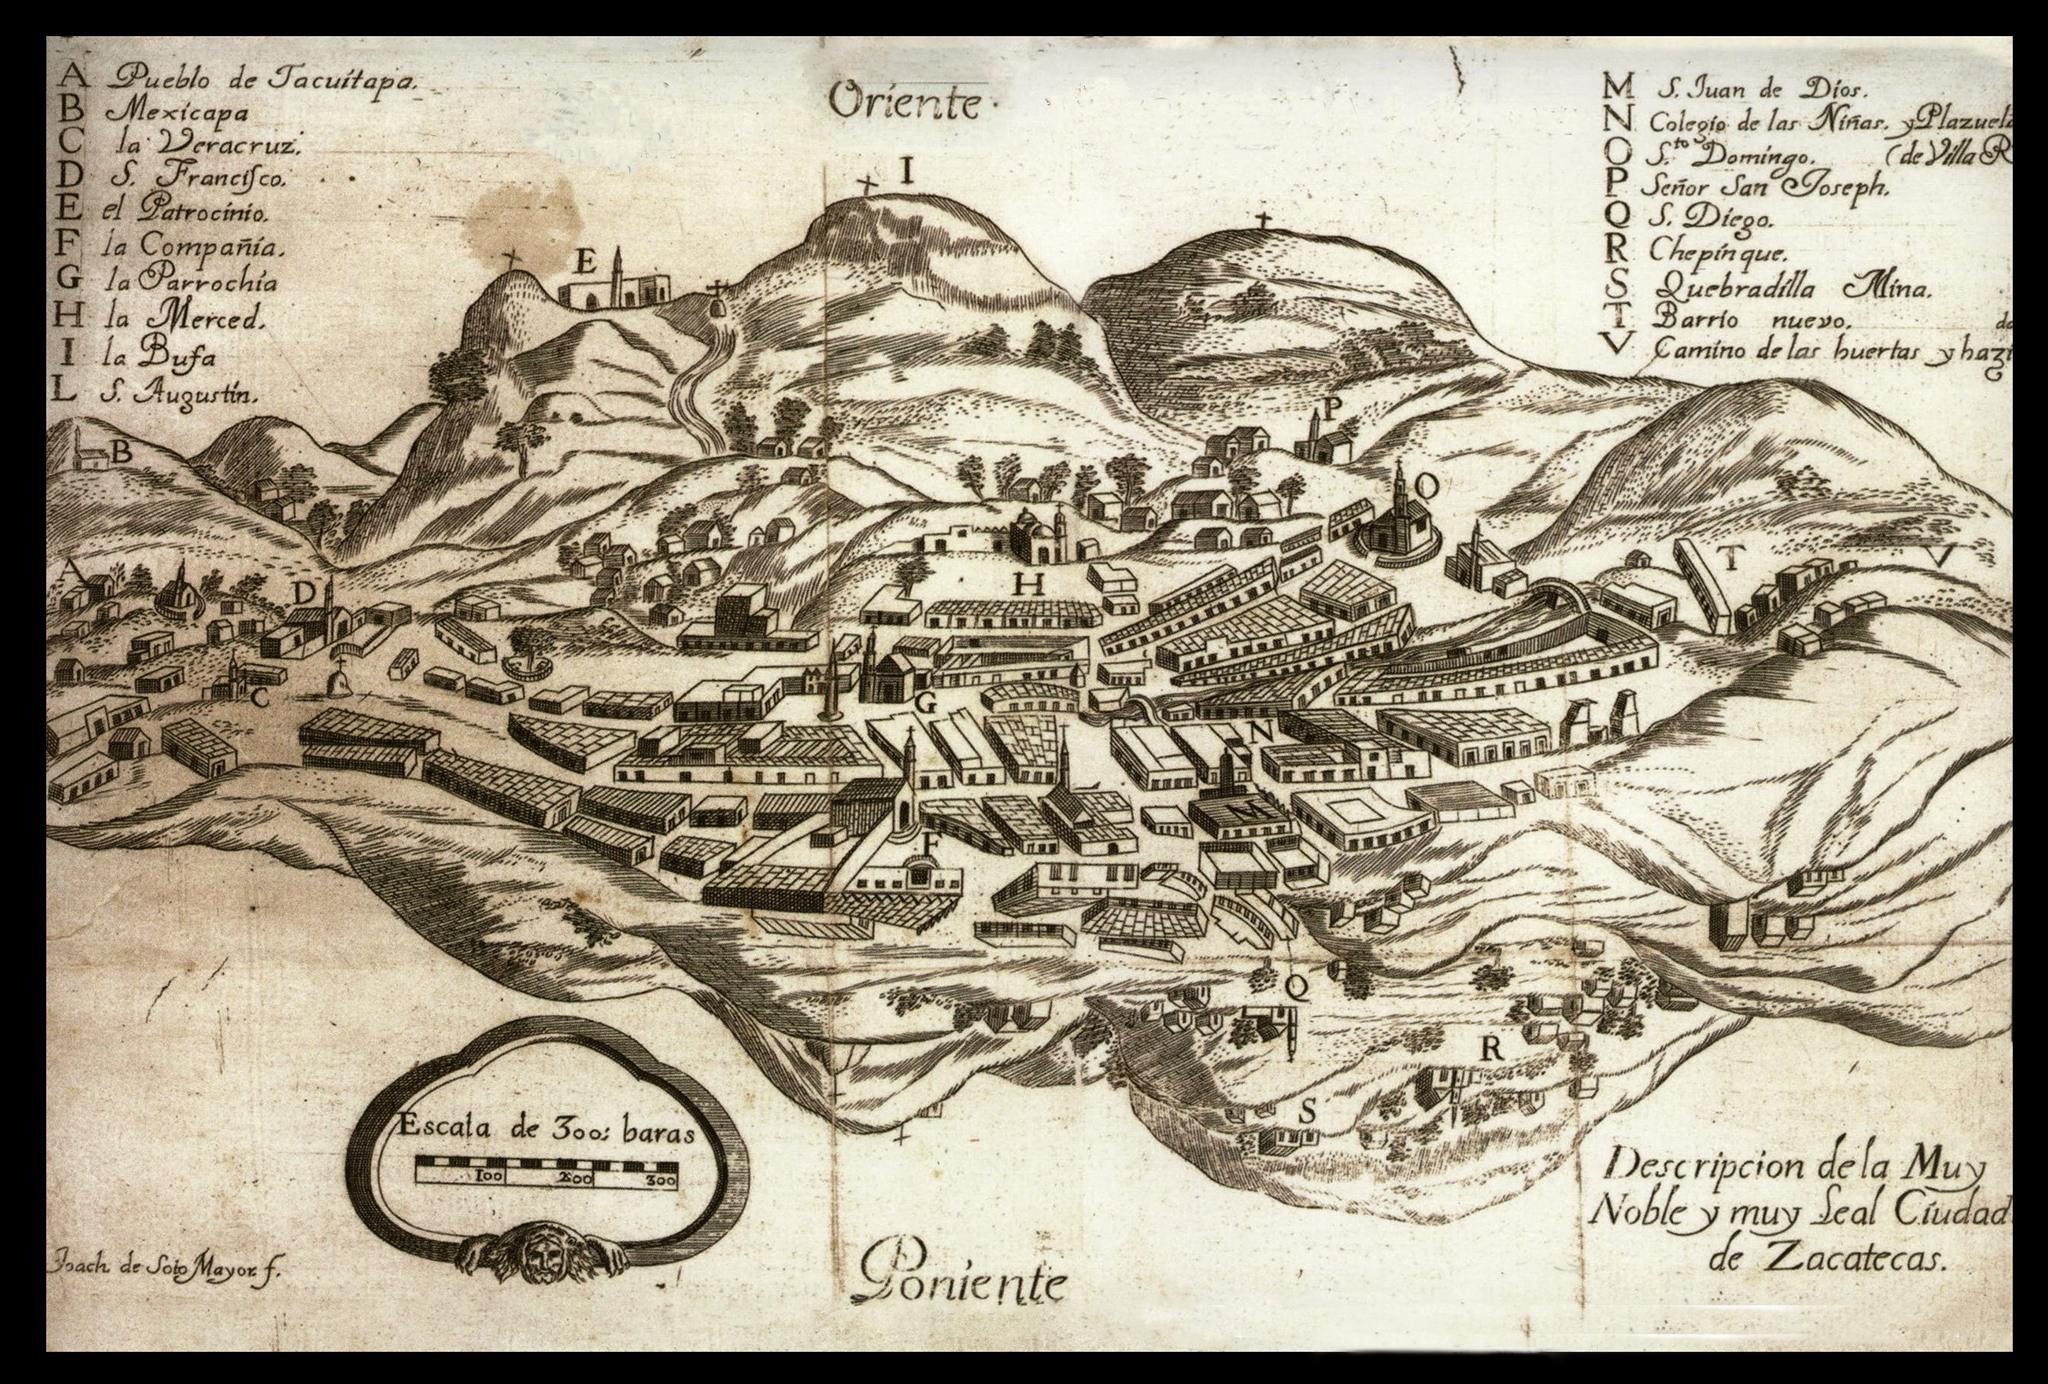 A Pueblo de Tacuitapa.
B Mexicapa
C la Veracruz.
D S. Francisco.
E el Patrocinio.
F la Compañia.
G la Parrochia
H la Merced.
I la Bufa
L S. Augustin.
Oriente.
M S. Juan de Dios.
N Colegio de las Niñas. y Plazuela
O S.to Domingo. (de Villa R
P Señor San Joseph.
Q S. Diego.
R Chepinque.
S Quebradilla Mina.
T Barrio nuevo. da
V Camino de las huertas y hazi
I
E
P
B
O
A
D
H
T
V
C
G
N
M
F
Q
R
S
Escala de 300: baras
100 200 300
Joach. de Soto Mayor f.
Poniente
Descripcion de la Muy
Noble y muy Leal Ciudad
de Zacatecas.